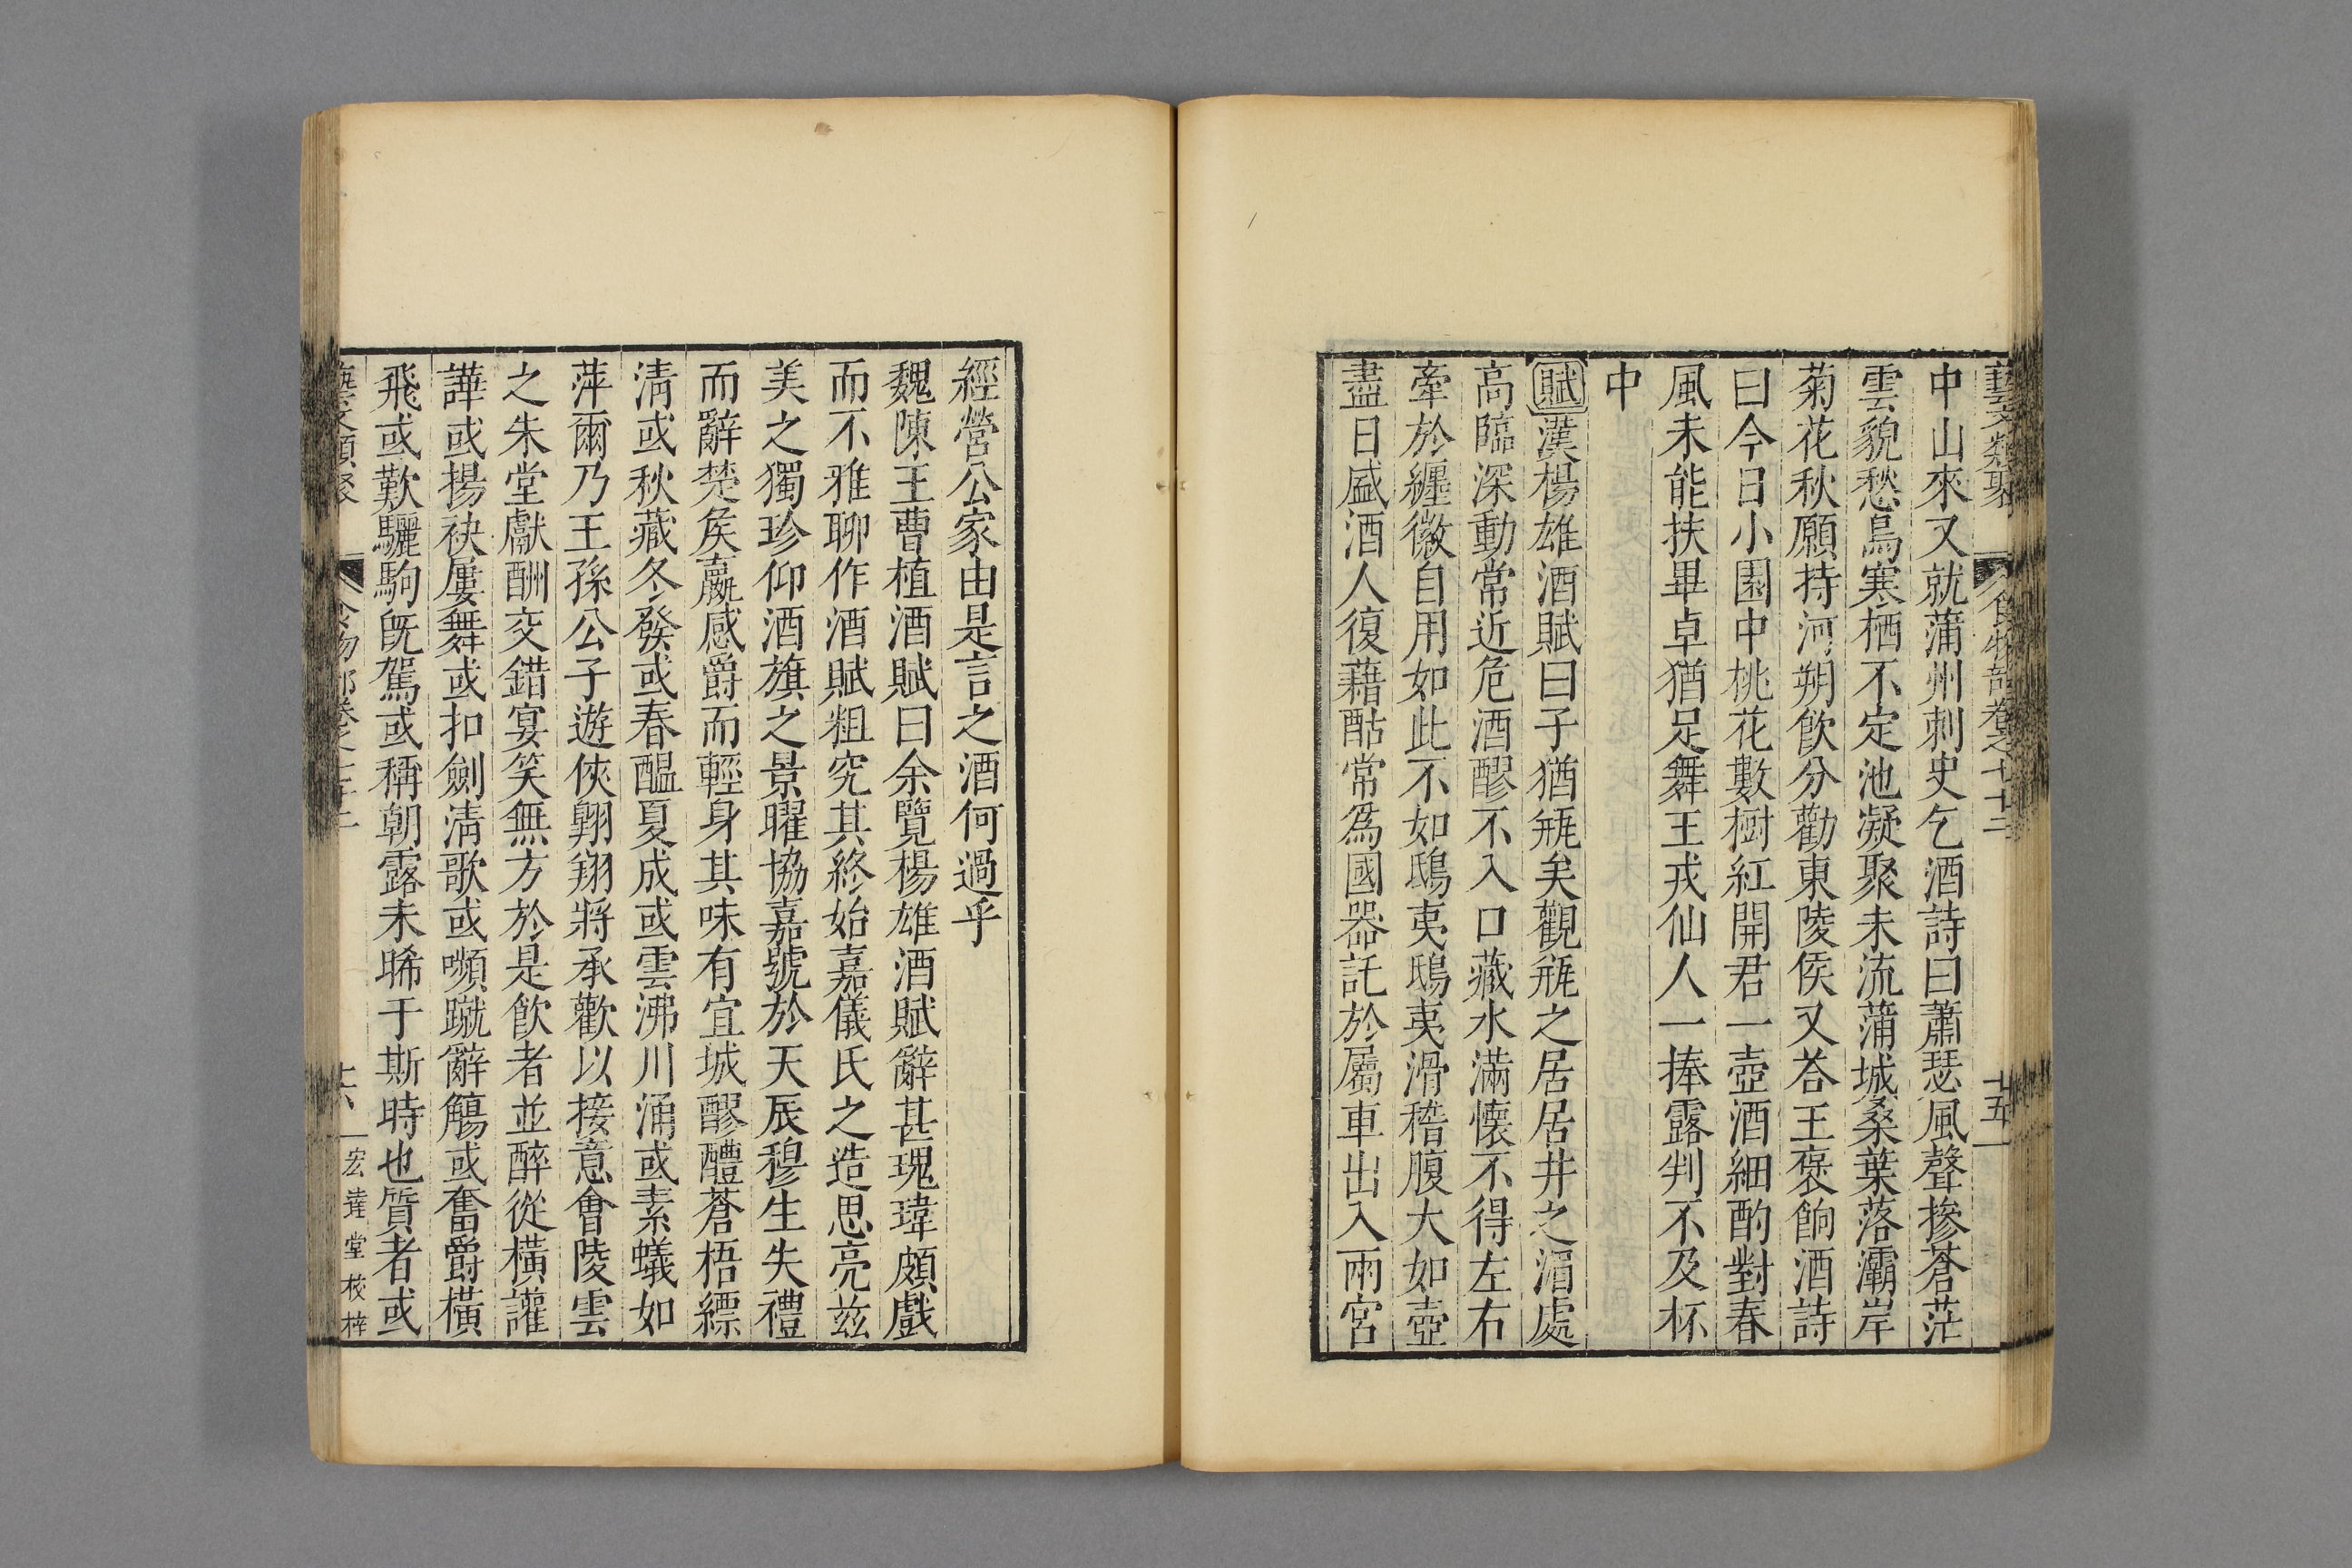 藝文類聚 食物部卷之七十二 十五
中山來又就蒲州刺史乞酒詩曰蕭瑟風聲摻蒼茫
雲貌愁鳥寒栖不定池凝聚未流蒲城桑葉落灞岸
菊花秋願持河朔飮分勸東陵侯又荅王褒餉酒詩
曰今日小園中桃花數樹紅開君一壺酒細酌對春
風未能扶畢卓猶足舞王戎仙人一捧露判不及杯
中
賦漢楊雄酒賦曰子猶瓶矣觀瓶之居居井之湄處
高臨深動常近危酒醪不入口藏水滿懷不得左右
牽於纏徽自用如此不如鴟夷鴟夷滑稽腹大如壺
盡日盛酒人復藉酤常爲國器託於屬車出入兩宮
經營公家由是言之酒何過乎
魏陳王曹植酒賦曰余覽楊雄酒賦辭甚瑰瑋頗戲
而不雅聊作酒賦粗究其終始嘉儀氏之造思亮茲
美之獨珍仰酒旗之景曜協嘉號於天辰穆生失禮
而辭楚侯嬴感爵而輕身其味有宜城醪醴蒼梧縹
清或秋藏冬發或春醞夏成或雲沸川涌或素蟻如
萍爾乃王孫公子遊俠翺翔將承歡以接意會陵雲
之朱堂獻酬交錯宴笑無方於是飮者並醉從橫讙
譁或揚袂屢舞或扣劍清歌或嚬蹴辭觴或奮爵橫
飛或歎驪駒旣駕或稱朝露未晞于斯時也質者或
藝文類聚 食物部卷之七十二 十六 宏達堂校梓